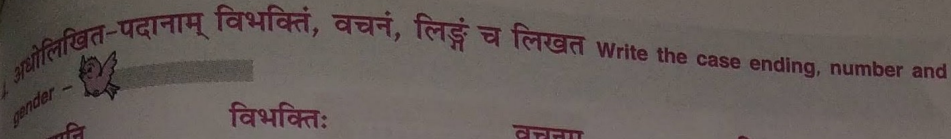 1. अधोलिखित-पदानाम् विभक्तिं, वचनं, लिङ्गं च लिखत Write the case ending, number and
gender –
विभक्तिः